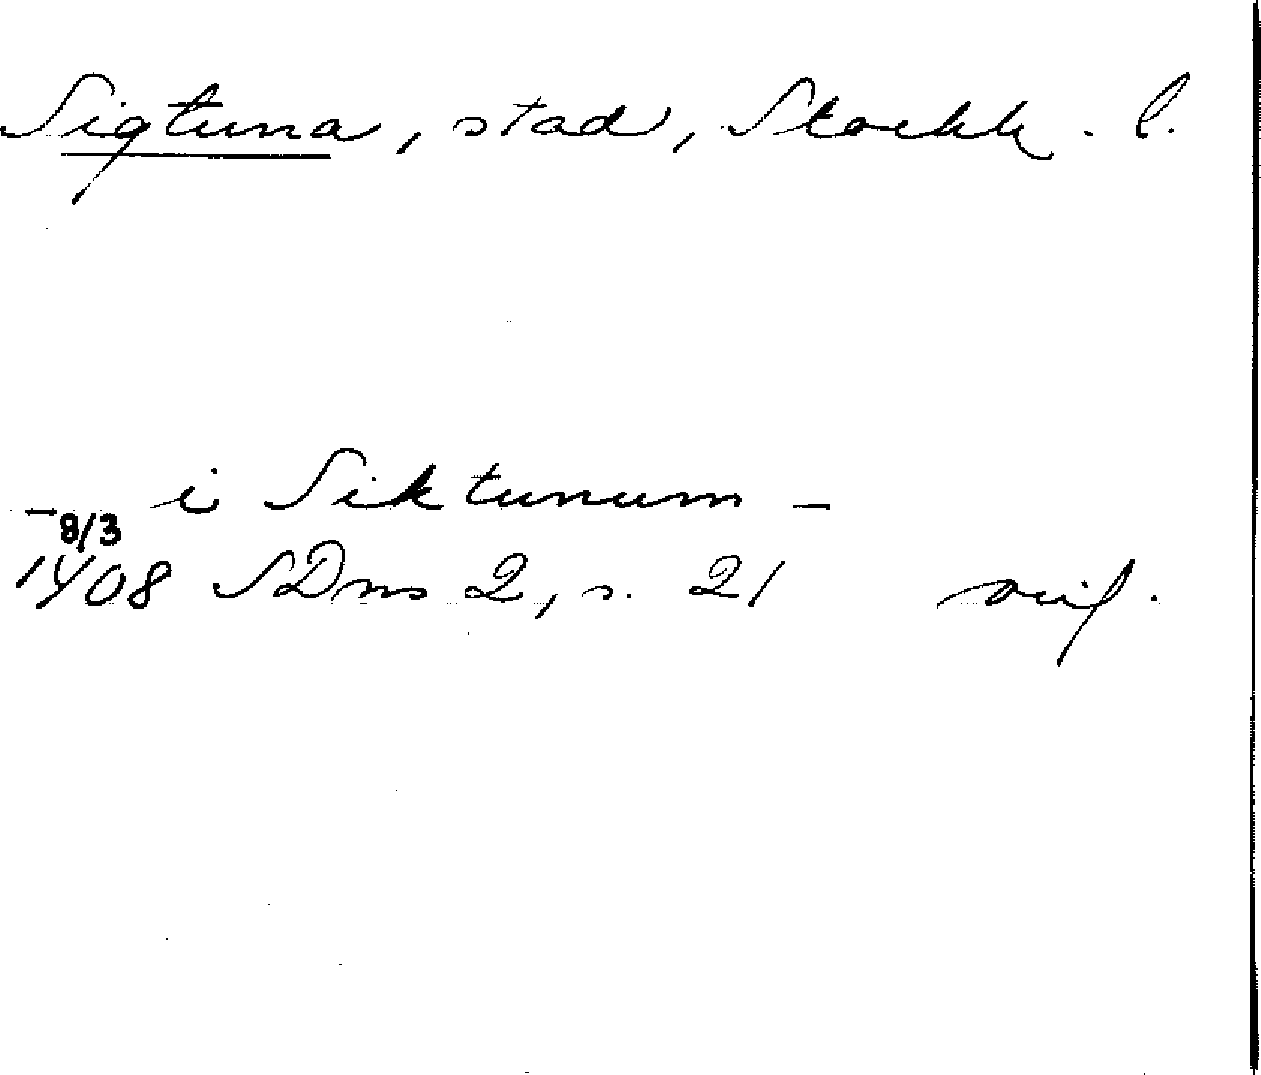 Sigtuna, stad, Stockh. l.
– i Siktunum –
8/3
1408 SDns 2, s. 21 orig.